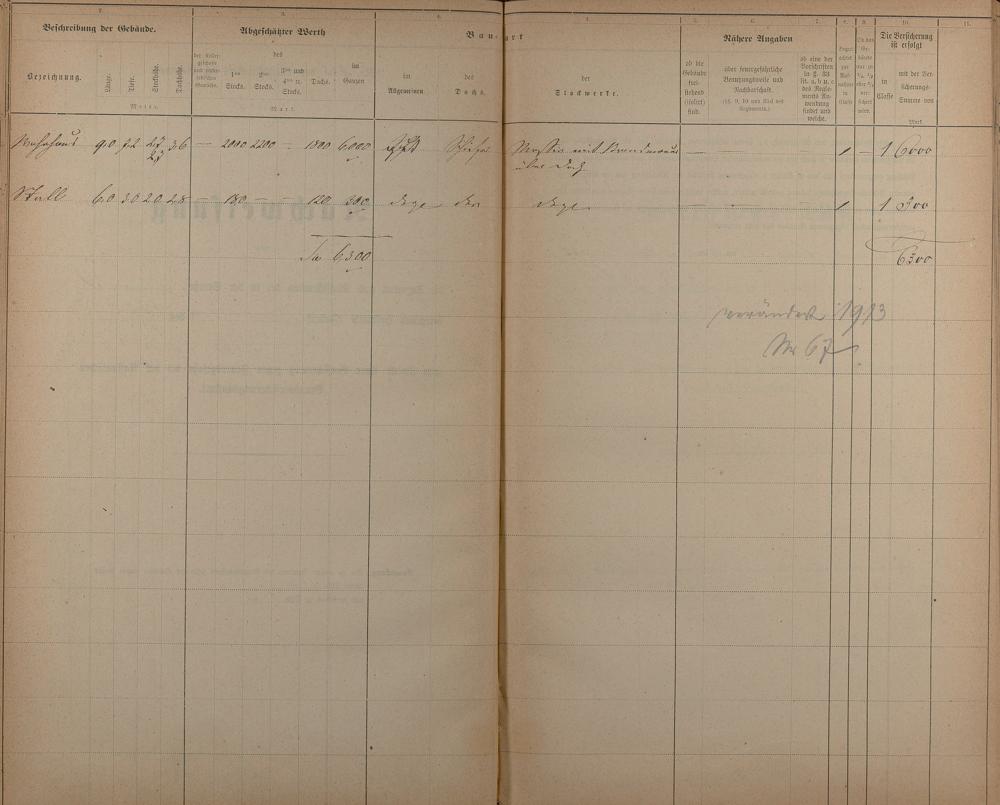 2. 3. 4. 5. 6. 7. 8. 9. 10. 11.
Beschreibung der Gebäude. Abgeschätzter Werth Bauart Nähere Angaben Die Versicherung ist erfolgt
Bezeichnung. Länge. Tiefe. Stockhöhe. Dachhöhe.
Meter.
des
1ten Stocks. 2ten Stocks. 3ten und 4ten u. Stocks. Dachs. im Ganzen
Mark.
im Allgemeinen des Dachs. der Stockwerke.
ob die Gebäude frei stehend (isolirt) sind.
über feuergefährliche Benutzungsweise und Nachbarschaft.
ob eine der Vorschriften in § 33 lit. a, b u. c des Reglements Anwendung findet und welche.
in Classe
mit der Versicherungs-Summe von
Mark
Wohnhaus 9.0 7.2 2.7 3.6 — 2000 2200 — 1800 6000 gut Schiefer Massiv mit Brandmauer — — — 1 — 1 6000
2.7 über Dach
Stall 6.0 3.0 2.0 2.8 — 180 — — 120 300 desgl. den desgl. — — — 1 — 1 300
Sa 6300 6300
verändert 1913
Nr 67